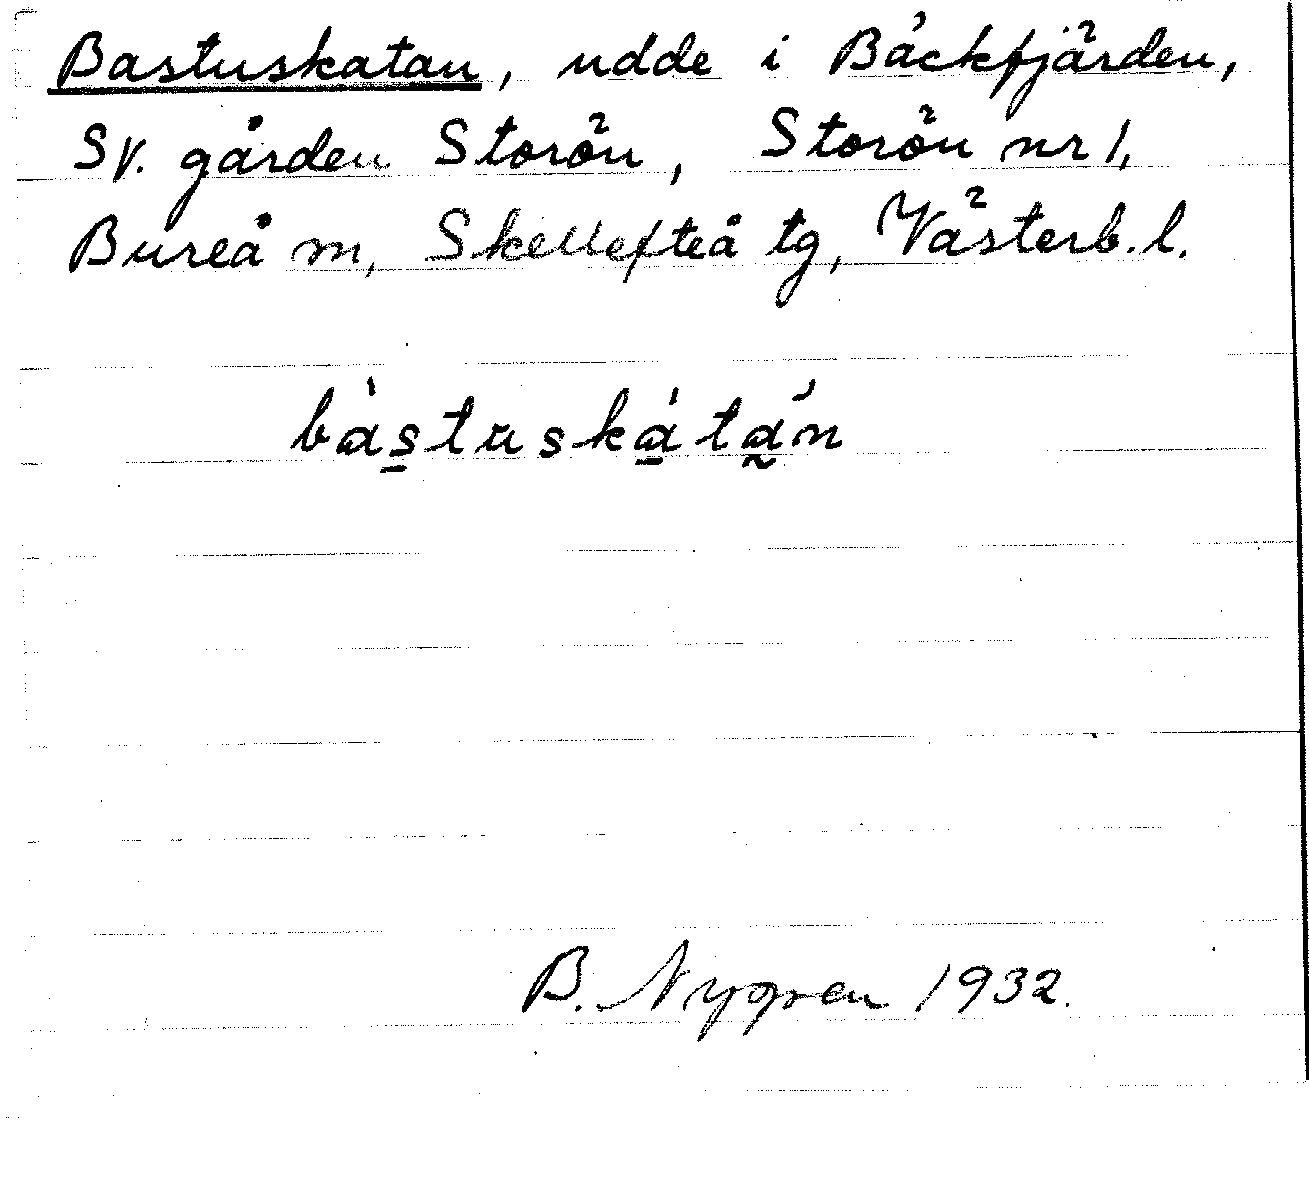 Bastuskatan, udde i Bäckfjärden,
SV. gården Storön, Storön nr 1,
Bureå m, Skellefteå tg, Västerb. l.
bàs̱tuská̱tá̰n
B. Nygren 1932.